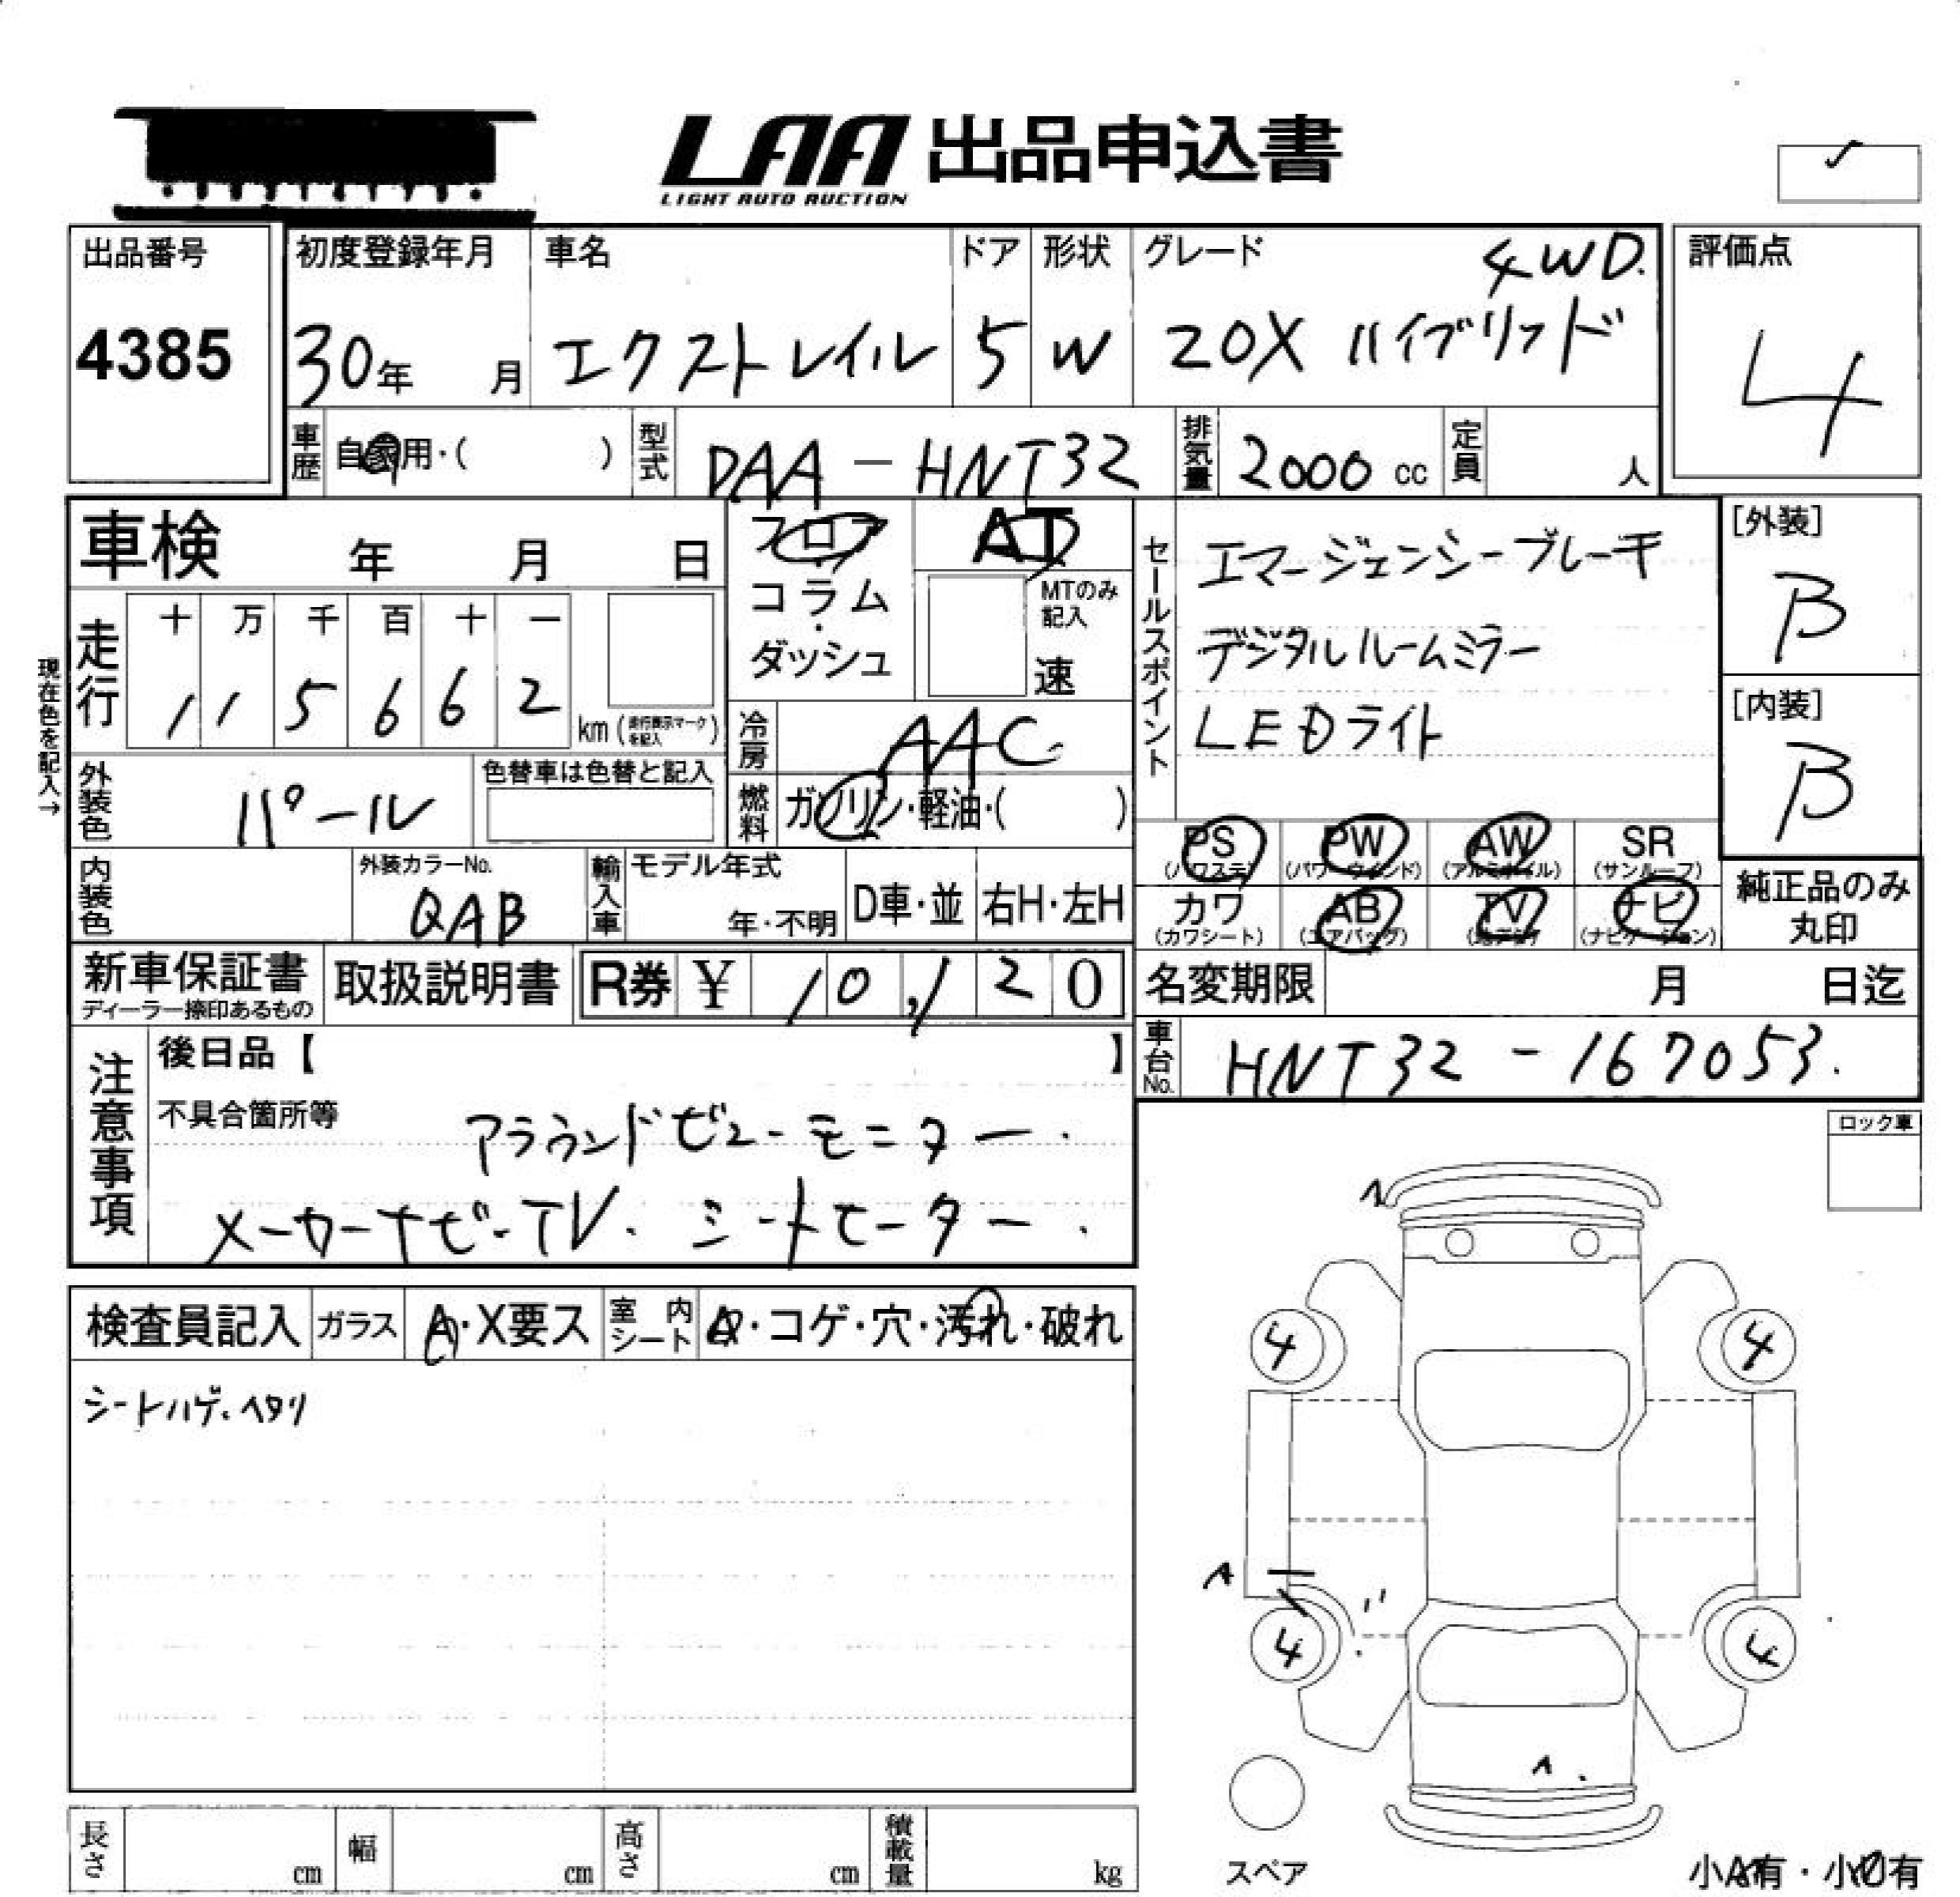 LAA 出品申込書
LIGHT AUTO AUCTION
出品番号 4385
初度登録年月 30年 月
車名 エクストレイル
ドア 5
形状 W
グレード 4WD.
20X ハイブリッド
評価点 4
車歴 自家用・( )
型式 DAA-HNT32
排気量 2000 cc
定員 人
車検 年 月 日
フロア・コラム・ダッシュ
AT
MTのみ記入
速
セールスポイント
エマージェンシーブレーキ
デジタルルームミラー
LEDライト
[外装] B
[内装] B
現在色を記入→
走行 十 万 千 百 十 一
1 1 5 6 6 2 km (走行表示マークを記入)
冷房 AAC
外装色 パール
色替車は色替と記入
燃料 ガソリン・軽油・( )
PS (パワステ)
PW (パワーウィンド)
AW (アルミホイル)
SR (サンルーフ)
カワ (カワシート)
AB (エアバッグ)
TV (地デジ)
ナビ (ナビゲーション)
純正品のみ丸印
内装色
外装カラーNo. QAB
輸入車 モデル年式 年・不明
D車・並
右H・左H
新車保証書
ディーラー捺印あるもの
取扱説明書
R券 ¥ 10,120
名変期限 月 日迄
車台No. HNT32-167053.
注意事項
後日品【 】
不具合箇所等
アラウンドビューモニター.
メーカーナビ-TV. シートヒーター.
ロック車
検査員記入
ガラス A・X要ス
室内シート A・コゲ・穴・汚れ・破れ
シートハゲ、ヘタリ
A
4 4
A
4 4
A
スペア
小A有・小U有
長さ cm
幅 cm
高さ cm
積載量 kg